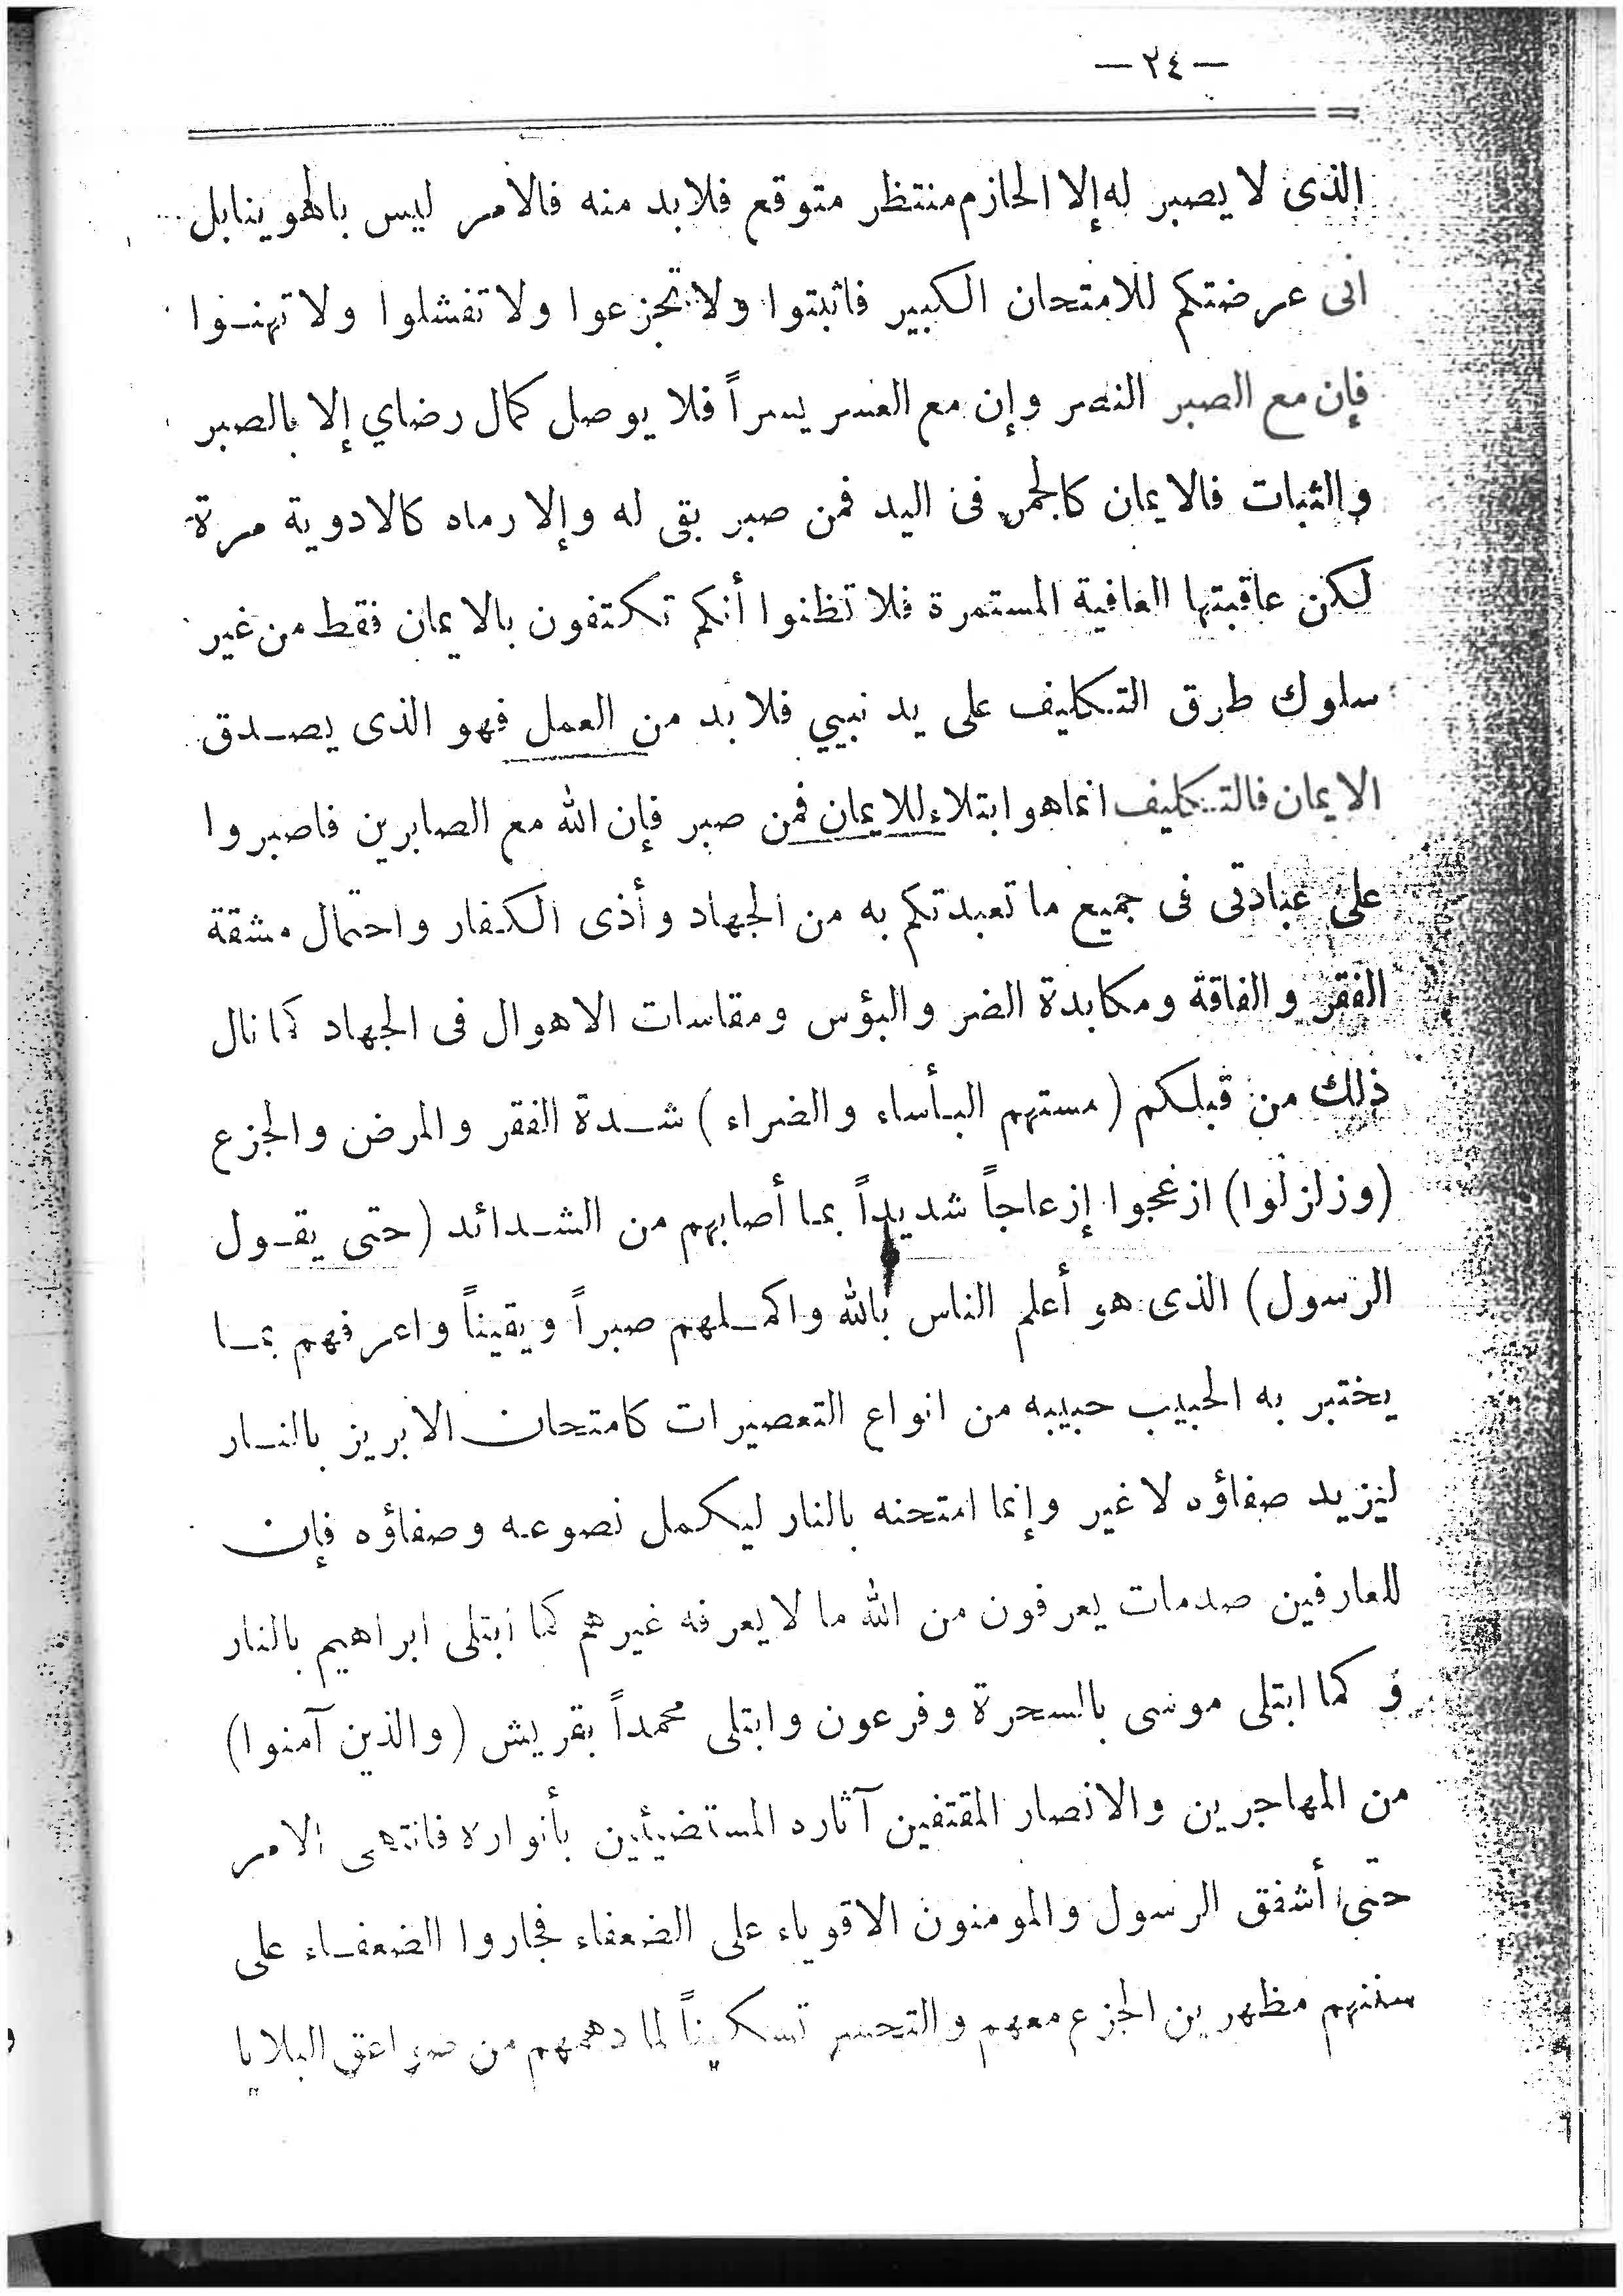 — ٢٤ —
الذى لا يصبر له إلا الحازم منتظر متوقع فلابد منه فالامر ليس بالهوينا بل
انى عرضتكم للامتحان الكبير فاثبتوا ولا تجزعوا ولا تفشلوا ولا تهنـوا
فإن مع الصبر النصر وإن مع العسر يسراً فلا يوصل كمال رضاي إلا بالصبر
والثبات فالايمان كالجمر فى اليد فمن صبر بقى له وإلا رماه كالادوية مرة
لكن عاقبتها العافية المستمرة فلا تظنوا أنكم تكتفون بالايمان فقط من غير
سلوك طرق التكليف على يد نبيي فلا بد من العمل فهو الذى يصـدق
الايمان فالتكليف انما هو ابتلاء للايمان فمن صبر فإن الله مع الصابرين فاصبروا
على عبادتى فى جميع ما تعبدتكم به من الجهاد وأذى الكفار واحتمال مشقة
الفقر والفاقة ومكابدة الضر والبؤس ومقاسات الاهوال فى الجهاد كما نال
ذلك من قبلكم (مستهم البأساء والضراء) شـدة الفقر والمرض والجزع
(وزلزلوا) ازعجوا إزعاجاً شديداً بما أصابهم من الشـدائد (حتى يقـول
الرسول) الذى هو أعلم الناس بالله واكمـلهم صبراً ويقيناً واعرفهم بمـا
يختبر به الحبيب حبيبه من انواع التعصيرات كامتحان الابريز بالنـار
ليزيد صفاؤه لا غير وإنما امتحنه بالنار ليكمل نصوعه وصفاؤه فإن
للعارفين صدمات يعرفون من الله ما لا يعرفه غيرهم كما ابتلى ابراهيم بالنار
و كما ابتلى موسى بالسحرة وفرعون وابتلى محمداً بقريش (والذين آمنوا)
من المهاجرين والانصار المقتفين آثاره المستضيئين بأنواره فانتهى الامر
حتى أشفق الرسول والمومنون الاقوياء على الضعفاء فجاروا الضعفـاء على
سننهم مظهرين الجزع معهم والتحسر تسكيناً لما دهمهم من صواعق البلايا